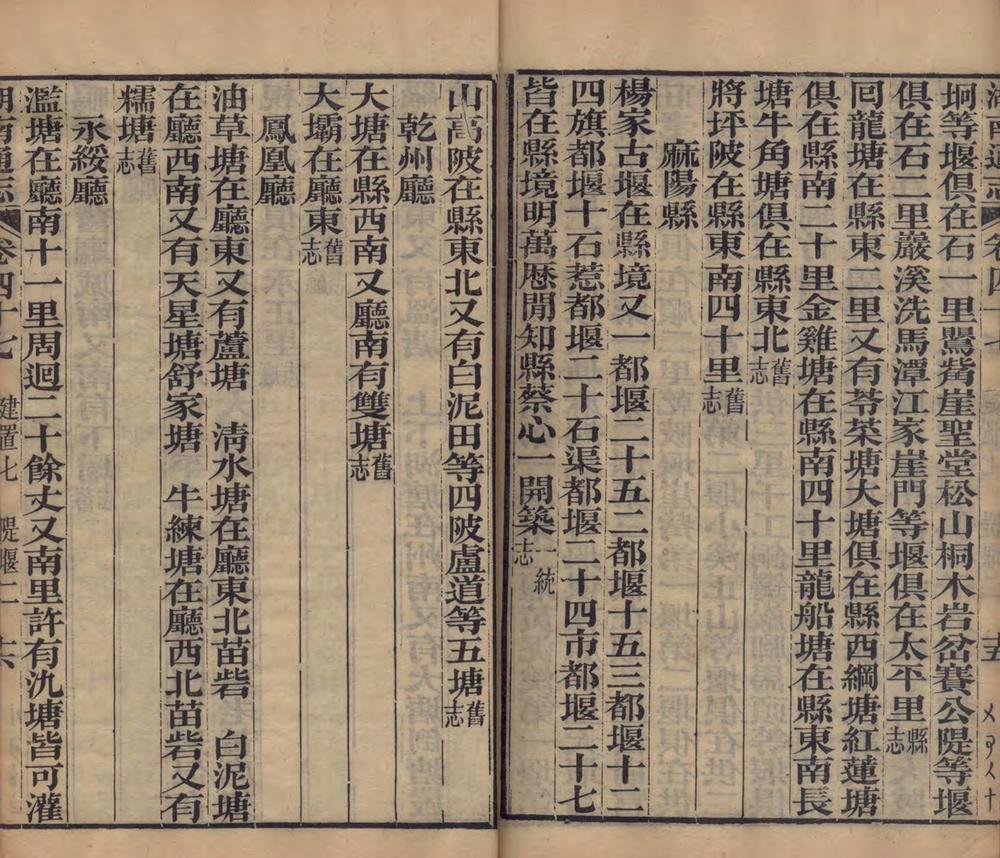 坰等堰俱在石一里鸎觜崖聖堂松山桐木岩岔賽公隄等堰
俱在石二里巖溪洗馬潭江家崖門等堰俱在太平里縣志
囘龍塘在縣東二里又有苓茶塘大塘俱在縣西綱塘紅蓮塘
俱在縣南二十里金雞塘在縣南四十里龍船塘在縣東南長
塘牛角塘俱在縣東北舊志
將坪陂在縣東南四十里舊志
麻陽縣
楊家古堰在縣境又一都堰二十五二都堰十五三都堰十二
四旗都堰十石惹都堰二十石渠都堰二十四市都堰二十七
皆在縣境明萬厯閒知縣蔡心一開築一統志
山高陂在縣東北又有白泥田等四陂盧道等五塘舊志
乾州廳
大塘在縣西南又廳南有雙塘舊志
大壩在廳東舊志
鳳凰廳
油草塘在廳東又有蘆塘 清水塘在廳東北苗砦 白泥塘
在廳西南又有天星塘舒家塘 牛練塘在廳西北苗砦又有
糯塘舊志
永綏廳
濫塘在廳南十一里周迴二十餘丈又南里許有氿塘皆可灌
湖南通志 卷四十七 建置七 隄堰二 六